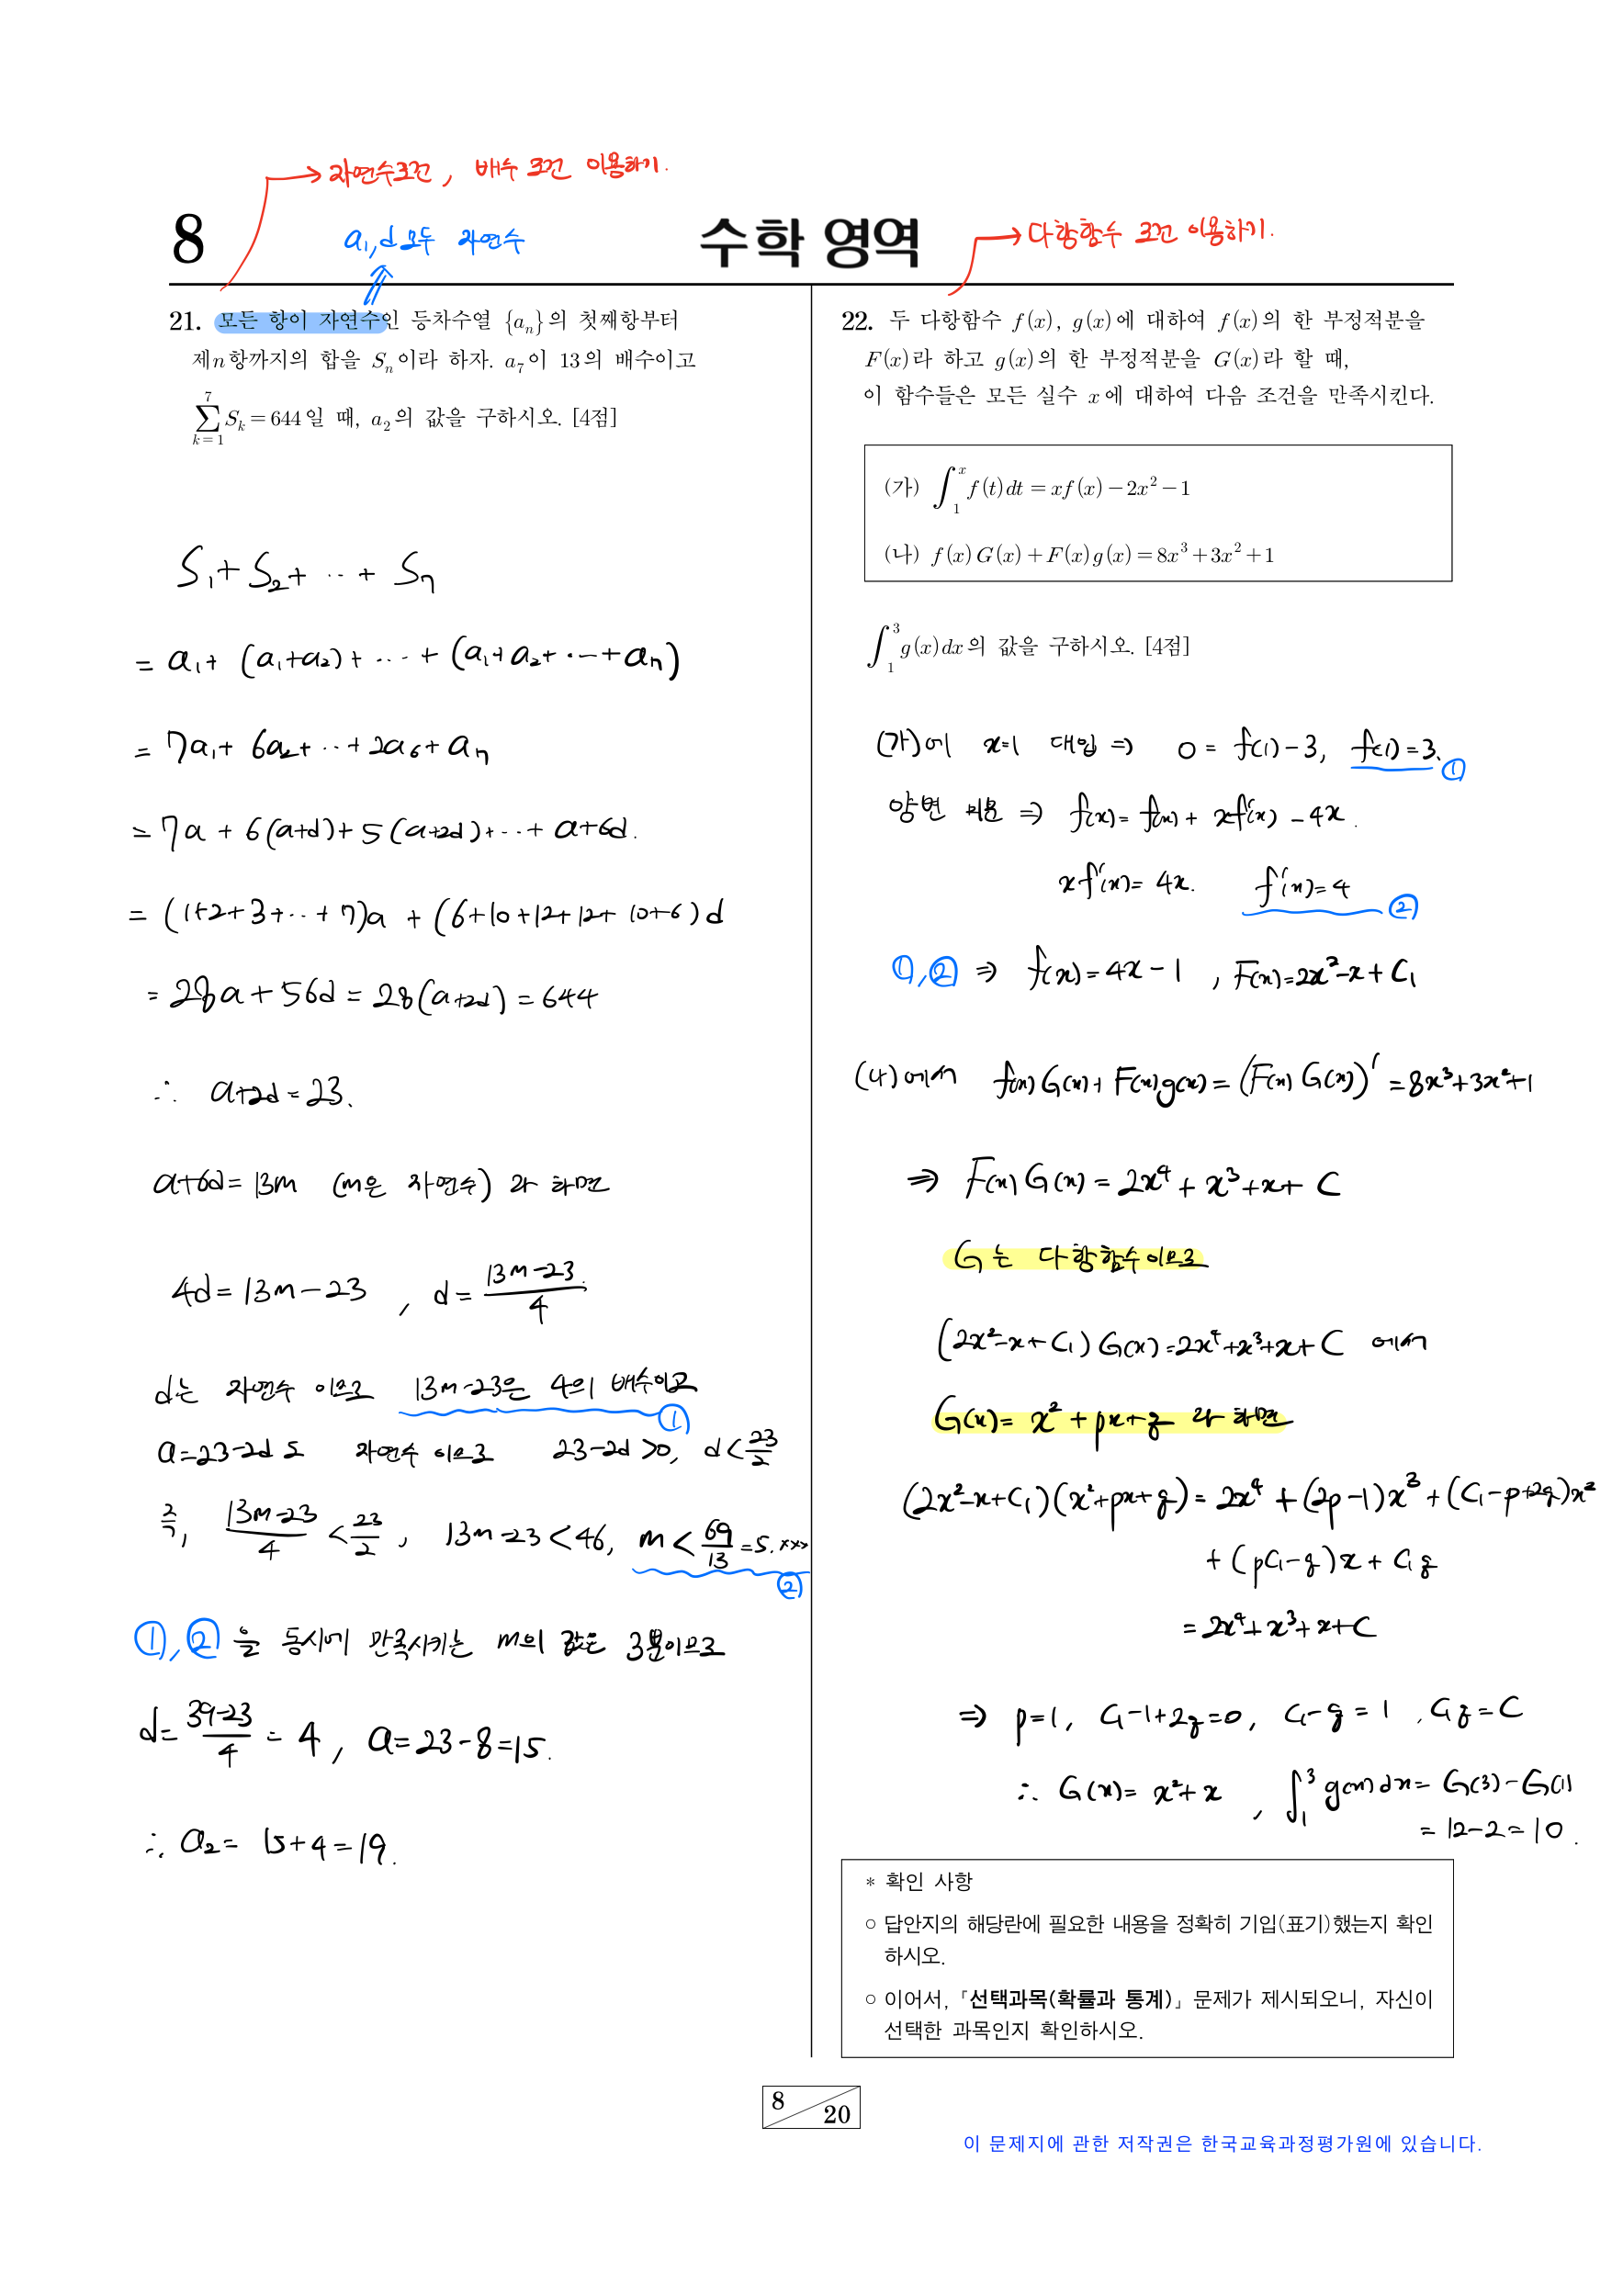 → 자연수조건, 배수 조건 이용하기.
8
a₁, d 모두 자연수
수학 영역
→ 다항함수 조건 이용하기.
21. 모든 항이 자연수인 등차수열 {aₙ}의 첫째항부터
제n항까지의 합을 Sₙ이라 하자. a₇이 13의 배수이고
∑_{k=1}^{7} Sₖ = 644일 때, a₂의 값을 구하시오. [4점]
S₁+S₂+ ··· + S₇
= a₁+ (a₁+a₂)+ ···· + (a₁+a₂+ ··· +a₇)
= 7a₁+ 6a₂+ ··· + 2a₆+a₇
= 7a + 6(a+d)+5(a+2d)+ ··· + a+6d.
= (1+2+3+ ··· +7)a + (6+10+12+12+10+6)d
= 28a+56d = 28(a+2d) = 644
∴ a+2d=23.
a+6d=13m (m은 자연수) 라 하면
4d=13m-23 , d= (13m-23)/4
d는 자연수 이므로 13m-23은 4의 배수이고 ①
a=23-2d 도 자연수 이므로 23-2d>0, d<23/2
즉, (13m-23)/4 < 23/2 , 13m-23<46, m< 69/13 =5.××× ②
①,② 을 동시에 만족시키는 m의 값은 3뿐이므로
d= (39-23)/4 = 4, a=23-8=15.
∴ a₂= 15+4=19.
22. 두 다항함수 f(x), g(x)에 대하여 f(x)의 한 부정적분을
F(x)라 하고 g(x)의 한 부정적분을 G(x)라 할 때,
이 함수들은 모든 실수 x에 대하여 다음 조건을 만족시킨다.
(가) ∫₁ˣ f(t)dt = xf(x)-2x²-1
(나) f(x)G(x)+F(x)g(x)=8x³+3x²+1
∫₁³ g(x)dx의 값을 구하시오. [4점]
(가)에 x=1 대입 ⇒ 0= f(1)-3, f(1)=3. ①
양변 미분 ⇒ f(x)= f(x)+ xf'(x) -4x.
xf'(x)= 4x. f'(x)=4 ②
①,② ⇒ f(x)=4x-1 , F(x)=2x²-x+C₁
(나)에서 f(x)G(x)+F(x)g(x)=(F(x)G(x))' =8x³+3x²+1
⇒ F(x)G(x)=2x⁴+x³+x+C
G는 다항함수이므로
(2x²-x+C₁)G(x)=2x⁴+x³+x+C 에서
G(x)= x²+px+q 라 하면
(2x²-x+C₁)(x²+px+q)= 2x⁴+(2p-1)x³+(C₁-p+2q)x²
+(pC₁-q)x+C₁q
=2x⁴+x³+x+C
⇒ p=1, C₁-1+2q=0, C₁-q=1 , C₁q=C
∴ G(x)= x²+x , ∫₁³ g(x)dx= G(3)-G(1)
= 12-2=10.
* 확인 사항
○ 답안지의 해당란에 필요한 내용을 정확히 기입(표기)했는지 확인
하시오.
○ 이어서, 「선택과목(확률과 통계)」 문제가 제시되오니, 자신이
선택한 과목인지 확인하시오.
8
20
이 문제지에 관한 저작권은 한국교육과정평가원에 있습니다.